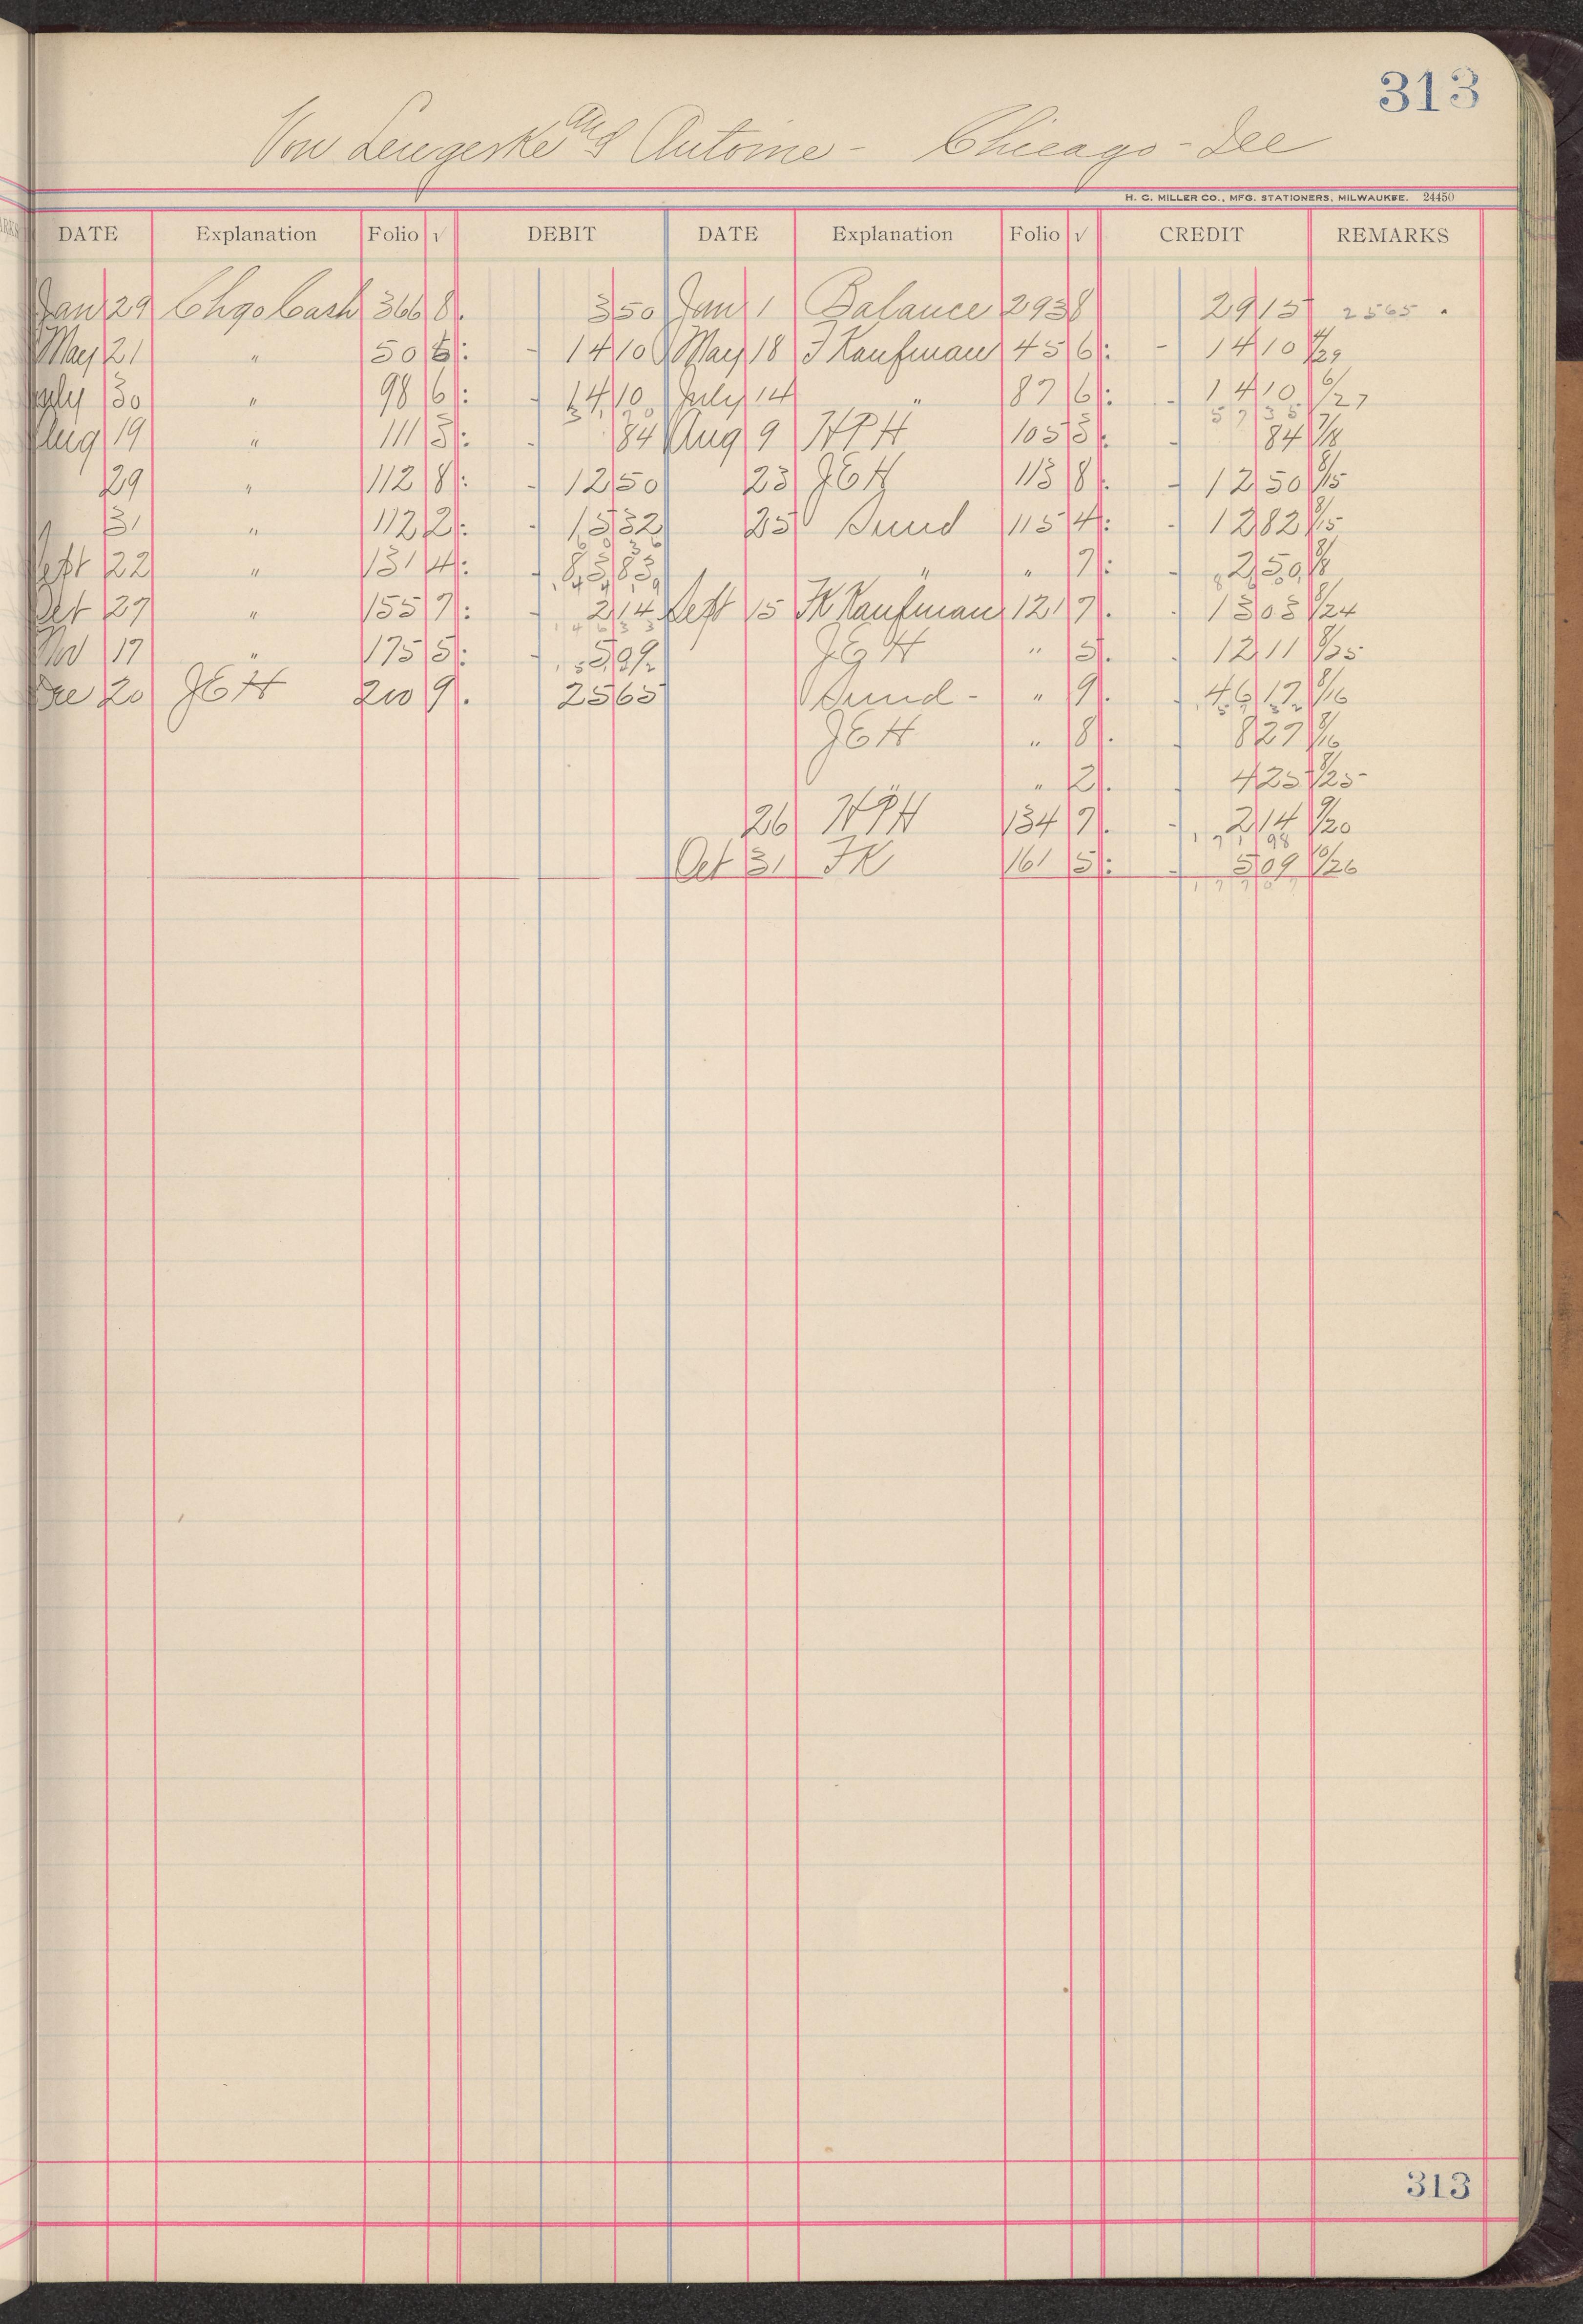 313
Von Lengerke and Antoine - Chicago - Dec
H. C. MILLER CO., MFG. STATIONERS, MILWAUKEE. 24450
DATE Explanation Folio √ DEBIT DATE Explanation Folio √ CREDIT REMARKS
Jan 29 Chgo Cash 366 8 350 Jan 1 Balance 293 8 29 15 2565
May 21 " 50 5 14 10 May 18 F Kaufman 45 6 14 10 4/29
July 30 " 98 6 14 10 July 14 " 87 6 14 10 6/27
Aug 19 " 111 3 84 Aug 9 HPH 105 3 84 7/18
29 " 112 8 12 50 23 JEH 113 8 12 50 8/15
31 " 112 2 15 32 25 Sund 115 4 12 82 8/15
Sept 22 " 131 4 83 83 " " 7 2 50 8/8
Oct 27 " 155 7 2 14 Sept 15 FK Kaufman 121 7 13 03 8/24
Nov 17 " 175 5 5 09 JEH " 5 12 11 8/25
Dec 20 JEH 200 9 25 65 Sund - " 9 46 17 8/16
JEH " 8 8 27 8/16
" 2 4 25 8/25
26 HPH 134 7 2 14 9/20
Oct 31 FK 161 5 5 09 10/26
313